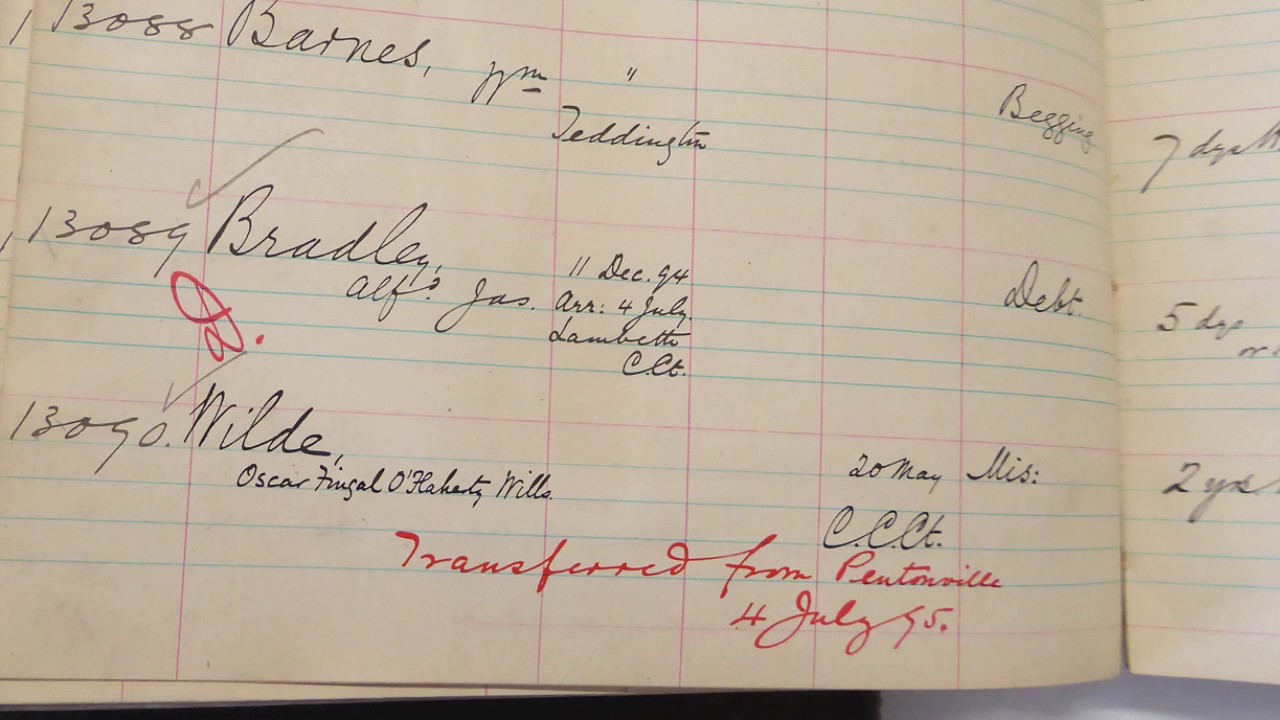 13088 Barnes, Wm "
Teddington
Begging
7 dys
13089 Bradley,
Alfd Jas.
11 Dec. 94
Arr: 4 July.
Lambeth
C.Ct.
Debt.
5 dys
or
13090. Wilde,
Oscar Fingal O'Flaherty Wills.
20 May Mis:
2 yrs
C.C.Ct.
Transferred from Pentonville
4 July 95.